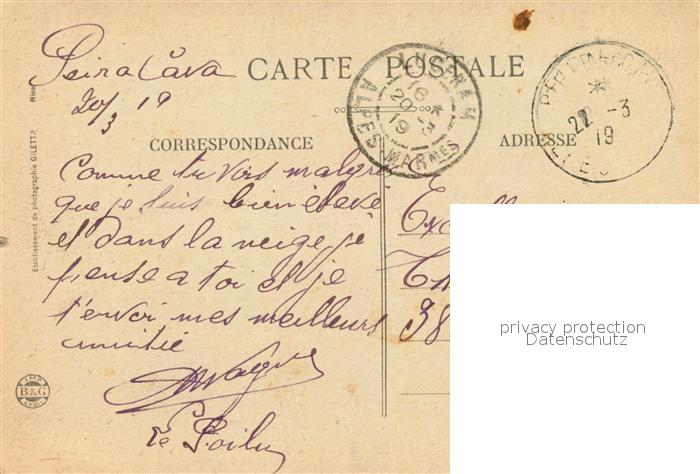 Peira Cava
CARTE POSTALE
20/3 19
CORRESPONDANCE
ADRESSE
LUCERAM
16
20 -3
19
ALPES-MARMES
22 -3
19
Comme tu vois malgré
que je suis bien élevé
et dans la neige je
pense a toi et je
t'envoi mes meilleurs
amitié
Le Poilu
38
Etablissement de photographie GILETTA Nice
IMP
B&G
LYON
privacy protection
Datenschutz